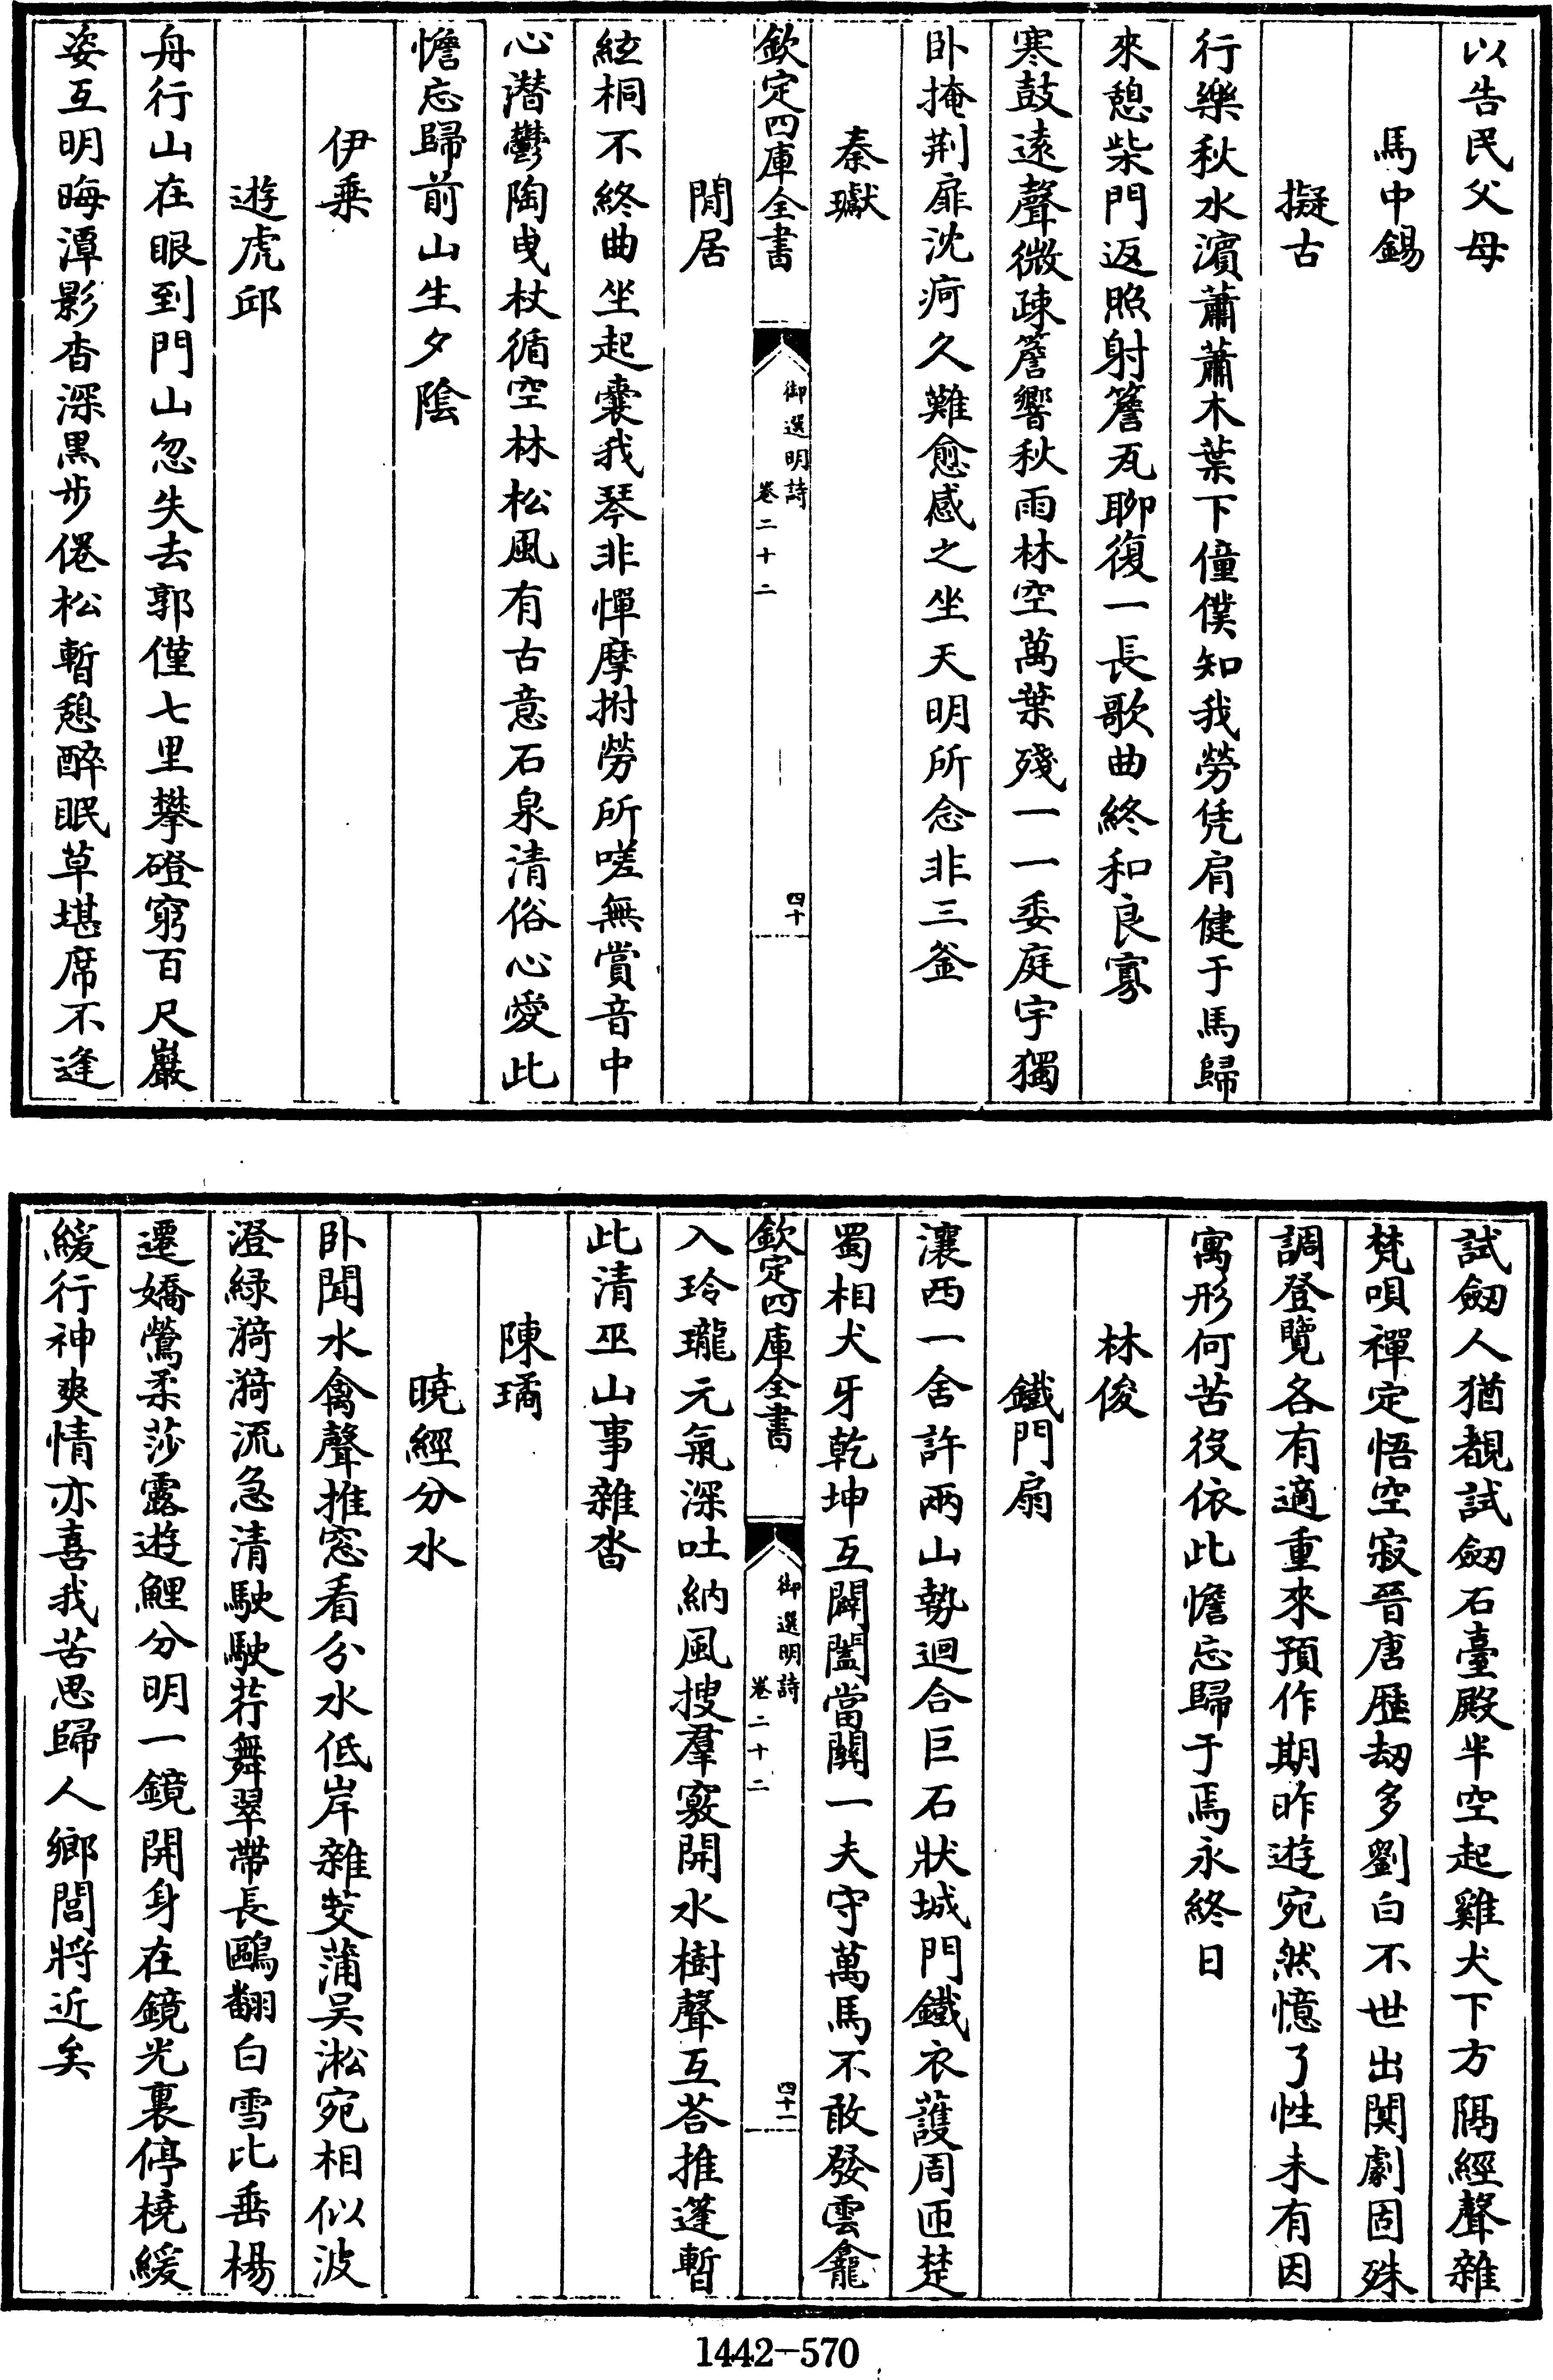 以告民父母
馬中錫
擬古
行樂秋水濱蕭蕭木葉下僮僕知我勞凭肩健于馬歸
來憩柴門返照射簷瓦聊復一長歌曲終和良寡
寒鼓遠聲微疎簷響秋雨林空萬葉殘一一委庭宇獨
卧掩荆扉沈疴久難愈感之坐天明所念非三釜
秦瓛
欽定四庫全書
御選明詩
卷二十二
四十
閒居
絃桐不終曲坐起囊我琴非憚摩拊勞所嗟無賞音中
心潛鬱陶曳杖循空林松風有古意石泉清俗心愛此
憺忘歸前山生夕陰
伊乗
遊虎邱
舟行山在眼到門山忽失去郭僅七里攀磴窮百尺巖
姿互明晦潭影杳深黒步倦松暫憩醉眠草堪席不逢
試劒人猶覩試劒石臺殿半空起雞犬下方隔經聲雜
梵唄禪定悟空寂晉唐歴劫多劉白不世出閴劇固殊
調登覽各有適重來預作期昨遊宛然憶了性未有因
寓形何苦役依此憺忘歸于焉永終日
林俊
鐵門扇
瀼西一舍許兩山勢迴合巨石狀城門鐵衣護周匝楚
蜀相犬牙乾坤互闢闔當關一夫守萬馬不敢發雲龕
欽定四庫全書
御選明詩
卷二十二
四十一
入玲瓏元氣深吐納風搜羣竅開水樹聲互荅推篷暫
此清巫山事雜沓
陳璚
曉經分水
卧聞水禽聲推窓看分水低岸雜茭蒲吴淞宛相似波
澄緑漪漪流急清駛駛荇舞翠帶長鷗翻白雪比垂楊
遷嬌鶯柔莎露遊鯉分明一鏡開身在鏡光裏停橈緩
緩行神爽情亦喜我苦思歸人鄉閭将近矣
1442-570